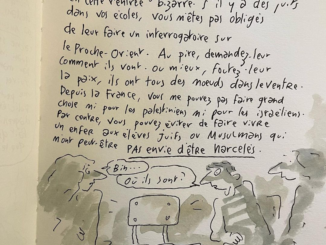 cette rentrée bizarre s'il y a des juifs
dans vos écoles, vous n'êtes pas obligés
de leur faire un interrogatoire sur
le Proche-Orient. Au pire, demandez-leur
comment ils vont. Ou mieux, foutez-leur
la paix, ils ont tous des nœuds dans le ventre.
Depuis la France, vous ne pouvez pas faire grand
chose ni pour les palestiniens ni pour les israéliens.
Par contre, vous pouvez éviter de faire vivre
un enfer aux élèves Juifs ou Musulmans qui
n'ont peut-être PAS envie d'être harcelés.
Ben...
Où ils sont?